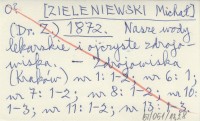 [ZIELENIEWSKI Michał]
(Dr. Z.) 1872. Nasze wody
lekarskie i ojczyste zdrojo-
wiska. — Zdrojowiska
(Kraków) nr 1: 1-3; nr 6: 1;
nr 7: 1-2; nr 8: 1-2; nr 10:
1-3; nr 11: 1-2; nr 13: 1-3.